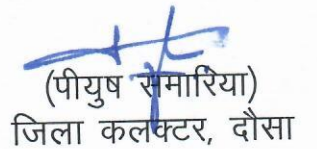 (पीयुष समारिया)
जिला कलक्टर, दौसा